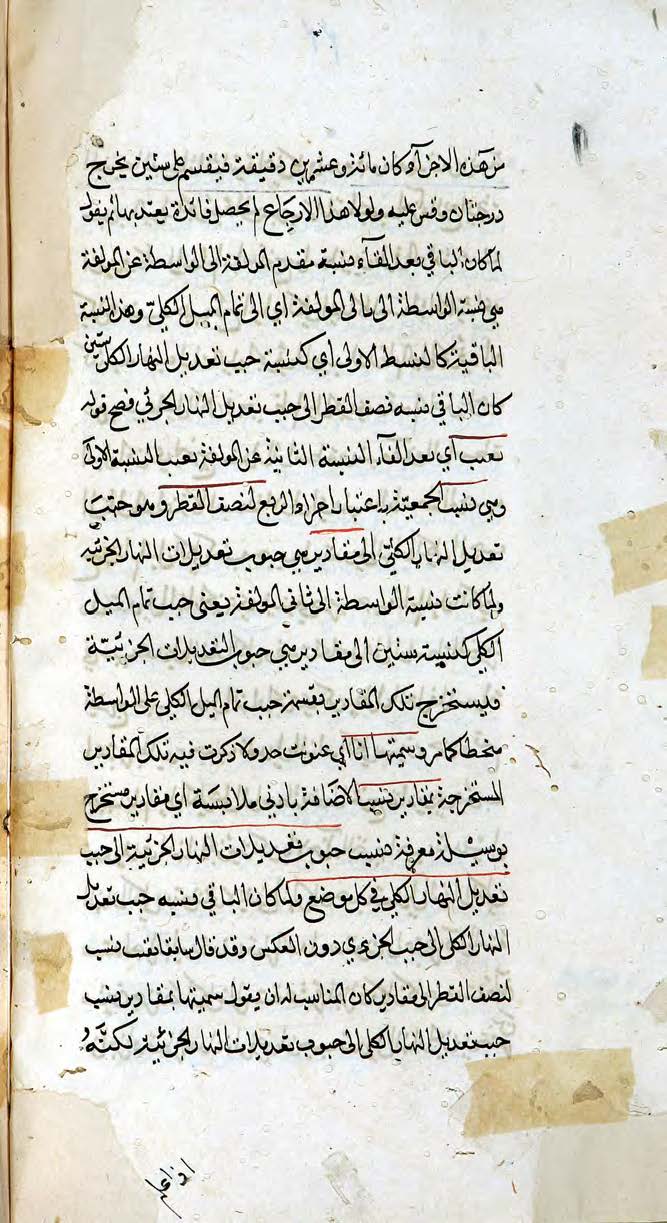 من هذه الاجزآء وكان مائة وعشرين دقيقة فيقسم على ستين يخرج
درجتان وقس عليه ولولا هذا الارجاع لم يحصل فائدة يعتد بها ثم يقول
لما كان الباقي بعد القآء نسبة مقدم المولفة الى الواسطة عن المولفة
هي نسبة الواسطة الى تالى المولفة اي الى تمام الميل الكلىّ وهذا النسبة
الباقية كالنسبة الاولى اي كنسبة جيب تعديل النهار الكلى ستين
كان الباقي نسبه نصف القطر الى جيب تعديل النهار الجزئي فصح قوله
بقيت اي بعد القآء النسبة الثانية عن المولفة بقيت النسبة الاولى
وهي نسبت الجمعيّة باعتبار اجزاء الربع لنصف القطر وهو جيب
تعديل النهار الكلىّ الى مقادير هي جيوب تعديلات النهار الجزئيه
ولما كانت نسبة الواسطة الى ثانى المولفة يعنى جيب تمام الميل
الكلى كنسبة ستين الى مقادير هي جيوب التعديلات الجزئيّة
فليستخرج تلك المقادير بقسمة جيب تمام الميل الكلى على الواسطة
منحطا كما مر وسميتها انا اي عنونت جدولا ذكرت فيه تلك المقادير
المستخرجة بمقادير نسب الاضافة بادني ملابسة اي مقادير مستخرج
بوسيلة معرفة نسب جيوب تعديلات النهار الجزئية الى جيب
تعديل النهار الكلى في كل موضع ولما كان الباقي نسبه جيب تعديل
النهار الكلى الى جيب الجزءى دون العكس وقد قال سابقا بقيت نسب
لنصف القطر الى مقادير كان المناسب له ان يقول سميتها بمقادير نسب
جيب تعديل النهار الكلى الى جيوب تعديلات النهار الجزئية لكنّه